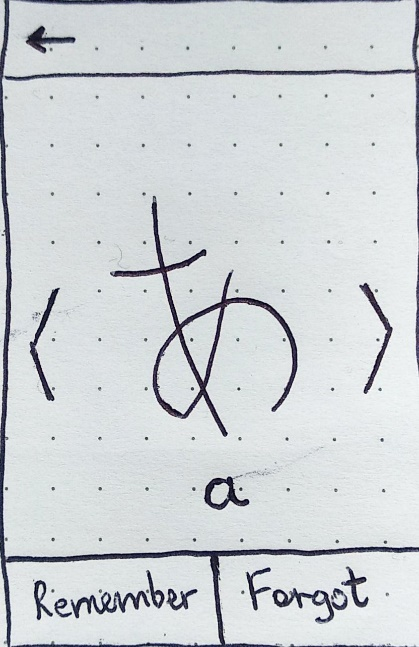 ←
〈 あ 〉
a
Remember Forgot